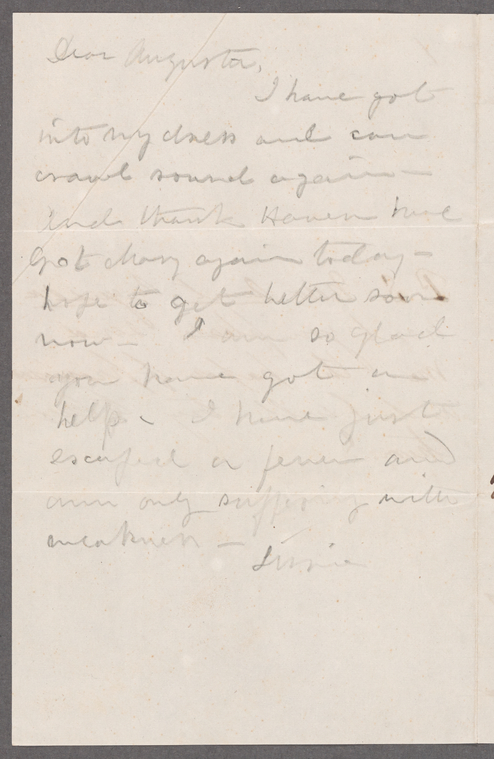 Dear Augusta,
I have got
into my dress and can
crawl round again—
And thank Heaven have
Got Mary again today—
hope to get better soon
now— I am so glad
you have got
help— I have just
escaped a fever and
am only suffering with
weakness—
Susie